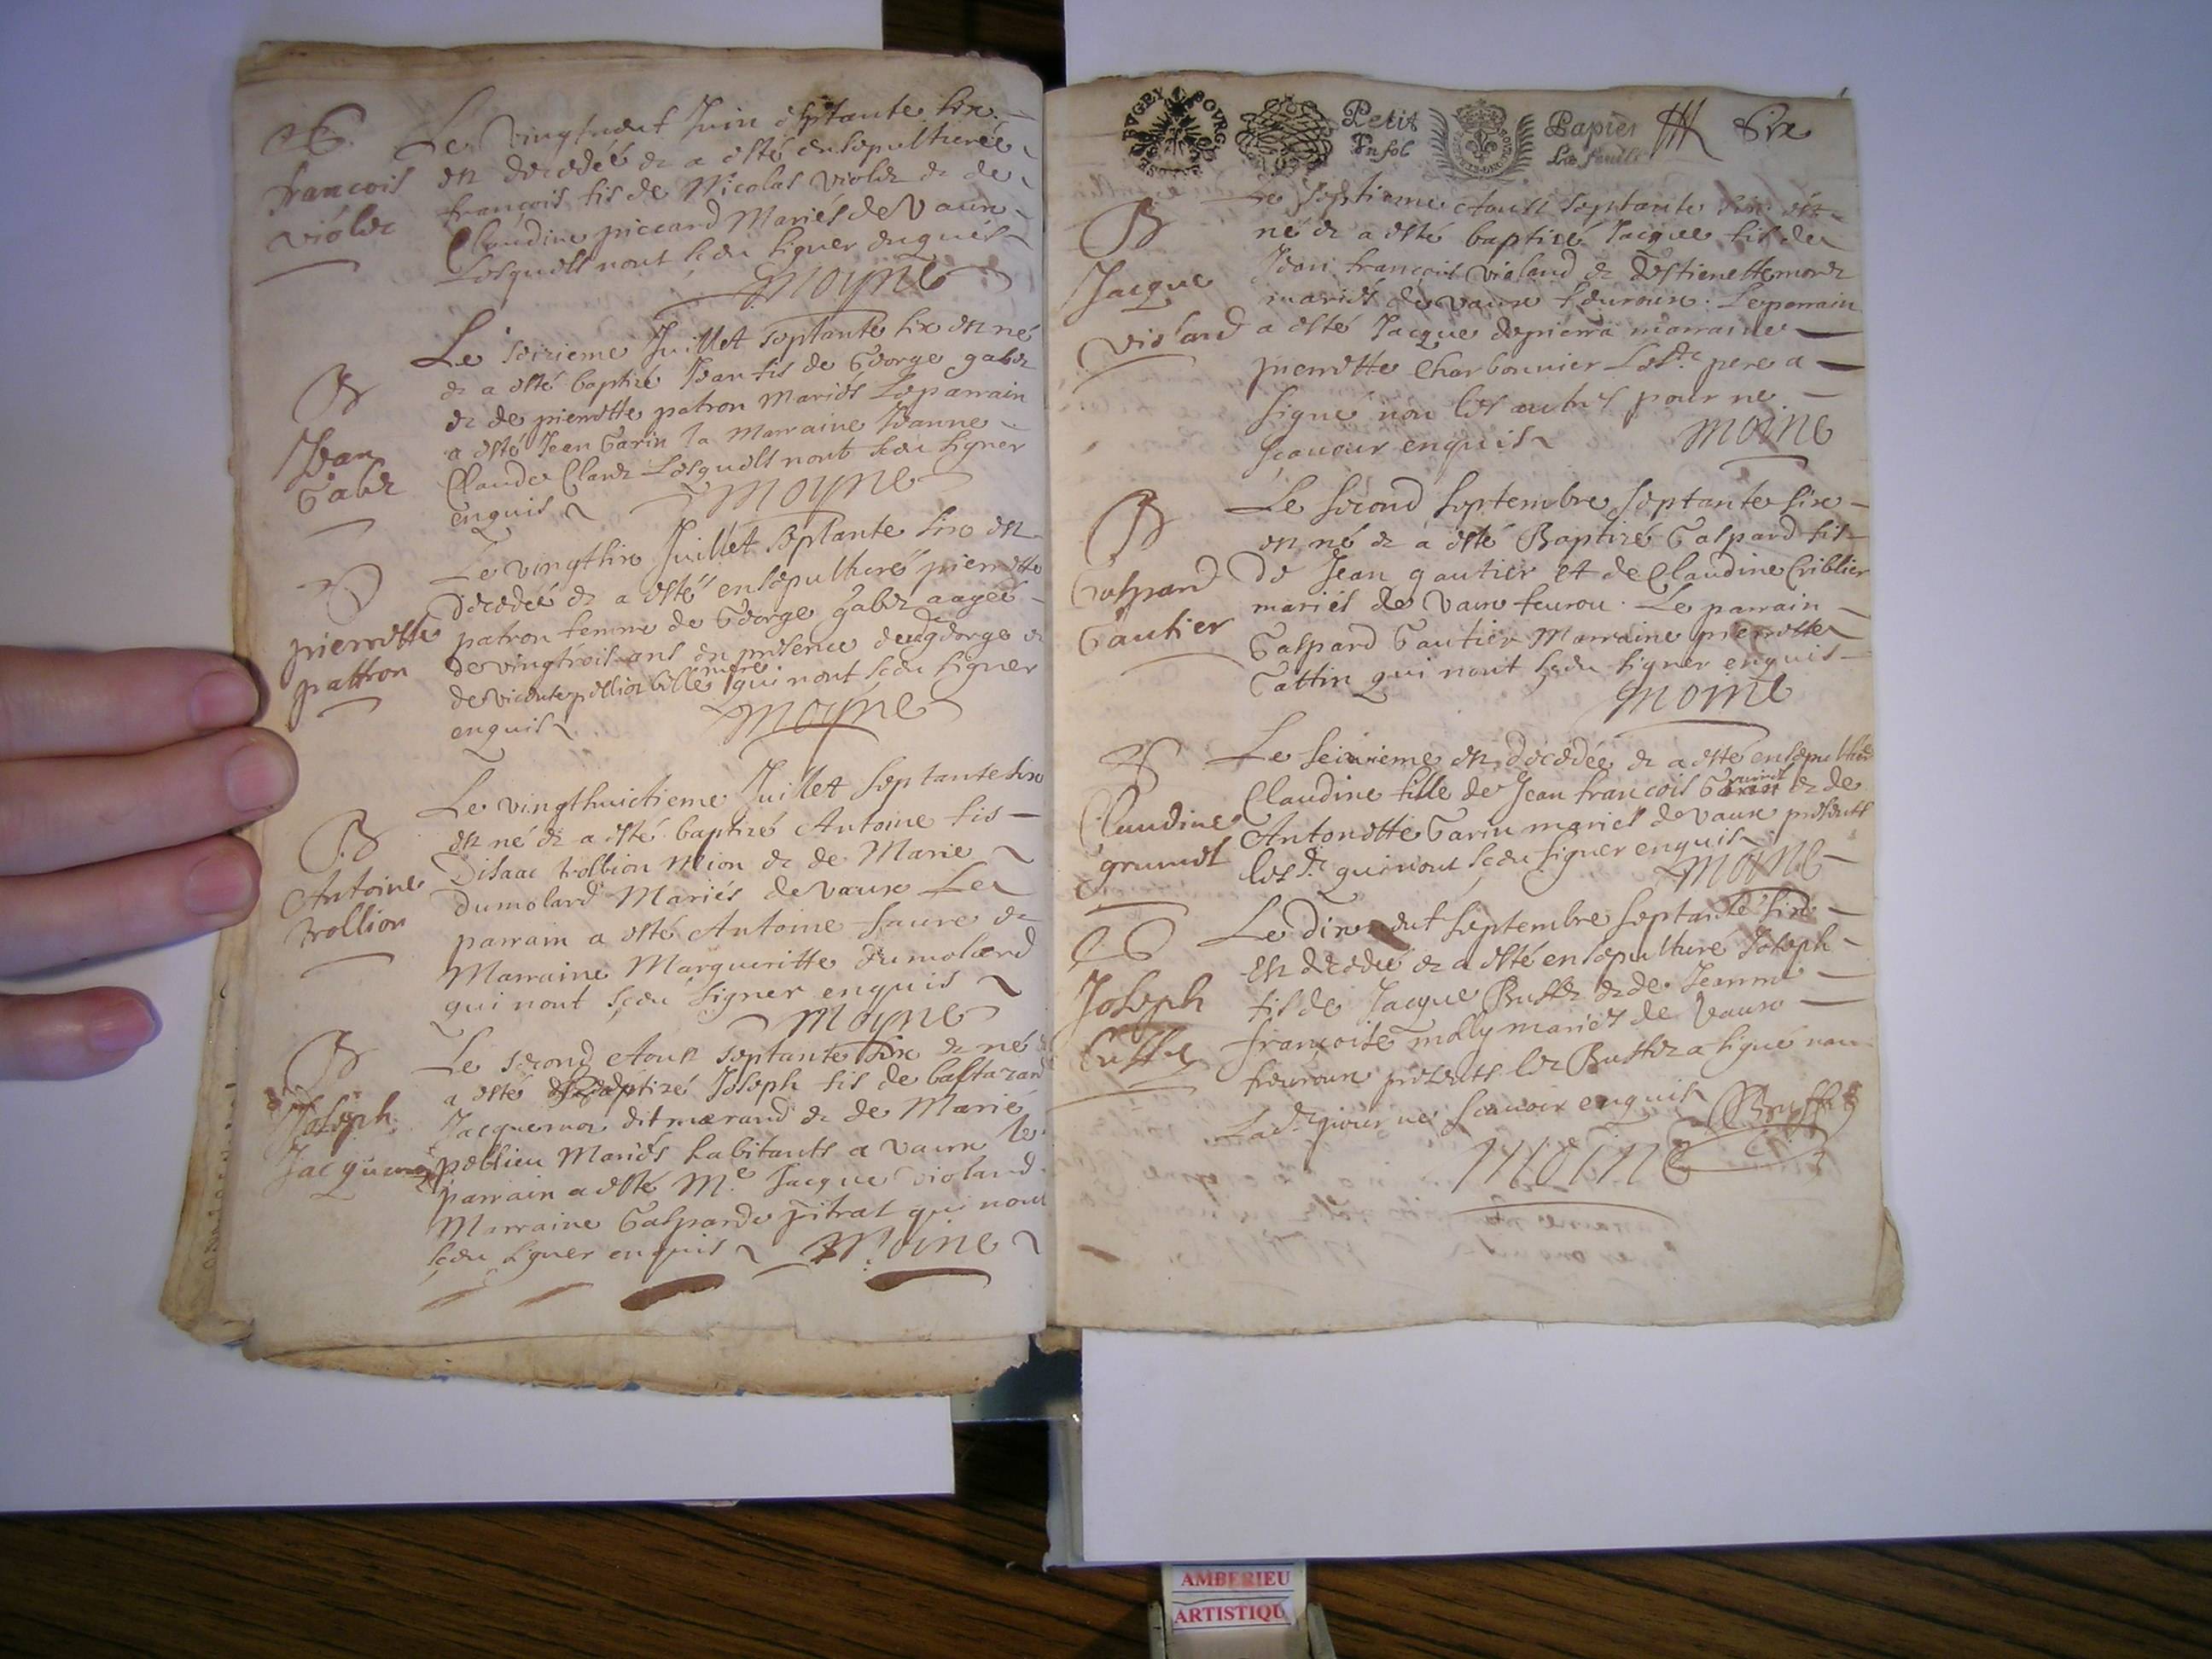 francois
violet
Le vingt neuf Juin septante six
est decedée et a esté ensepulturée
francois fis de Nicolas violet et de
Claudine piccard Mariés de Vaux
Lesquels nont sçeu signer enquis
Moyne
B
Jean
Gabet
Le seizieme Juillet septante six est né
et a esté baptizé Jean fis de George gabet
et de pierrette patron Mariés Le parrain
a esté Jean Garin la Marraine Jeanne
Claude Claret Lesquels nont sçeu signer
enquis
Moyne
pierrette
pattron
Le vingt six Juillet septante six est
decedée et a esté ensepulturé pierrette
patron femme de George gabet aagée
de vingt trois ans en presence dud George et
qui nont sçeu signer
enquis
Moyne
B
Antoine
trollion
Le vingt huictieme Juillet septante six
est né et a esté baptizé Antoine fis
Disaac trollion Mion et de Marie
Dumolard Mariés de Vaux Le
parrain a esté Antoine faure et
Marraine Margueritte Dumolard
qui nont sçeu signer enquis
Moyne
B
Joseph
Jacquemet
Le second Aoust septante six est né et
a esté baptizé Joseph fis de baltazard
Jacquemet dit marand et de Marie
pellieu Mariés habitants a Vaux le
parrain a esté Me Jacque violand
Marraine Gasparde pitrat qui nont
sçeu signer enquis Moine
BVGEY BOVRG
Petit
In fol
Papier
La feuille
Six
B
Jacque
violand
Le septieme Aoust septante six est
né et a esté baptizé Jacque fis de
Jean francois violand et destienette moret
mariés de vaux feuroux. Le parrain
a esté Jacque depierra marraine
pierrette Charbonnier Led. pere a
signé non les autres pour ne
sçavoir enquis
Moine
B
Gaspard
Gautier
Le second septembre septante six
est né et a esté Baptizé Gaspard fis
de Jean gautier et de Claudine Criblier
mariés de Vaux feurou. Le parrain
Gaspard Gautier Marraine pierrette
Gattin qui nont sçeu signer enquis
Moine
Claudine
grumet
Le seizieme est decedée et a esté ensepulturée
Claudine fille de Jean francois et de
Antonette Garin mariés de vaux presents
lesd. qui nont sçeu signer enquis
Moine
Joseph
buffet
Le dix neuf septembre septante six
est decedé et a esté ensepulturé Joseph
fis de Jacque Buffet et de Jeanne
francoise molly mariés de Vaux
feuroux presents led Buffet a signé non
Lad. pour ne scavoir enquis Buffet
Moine
AMBERIEU
ARTISTIQU